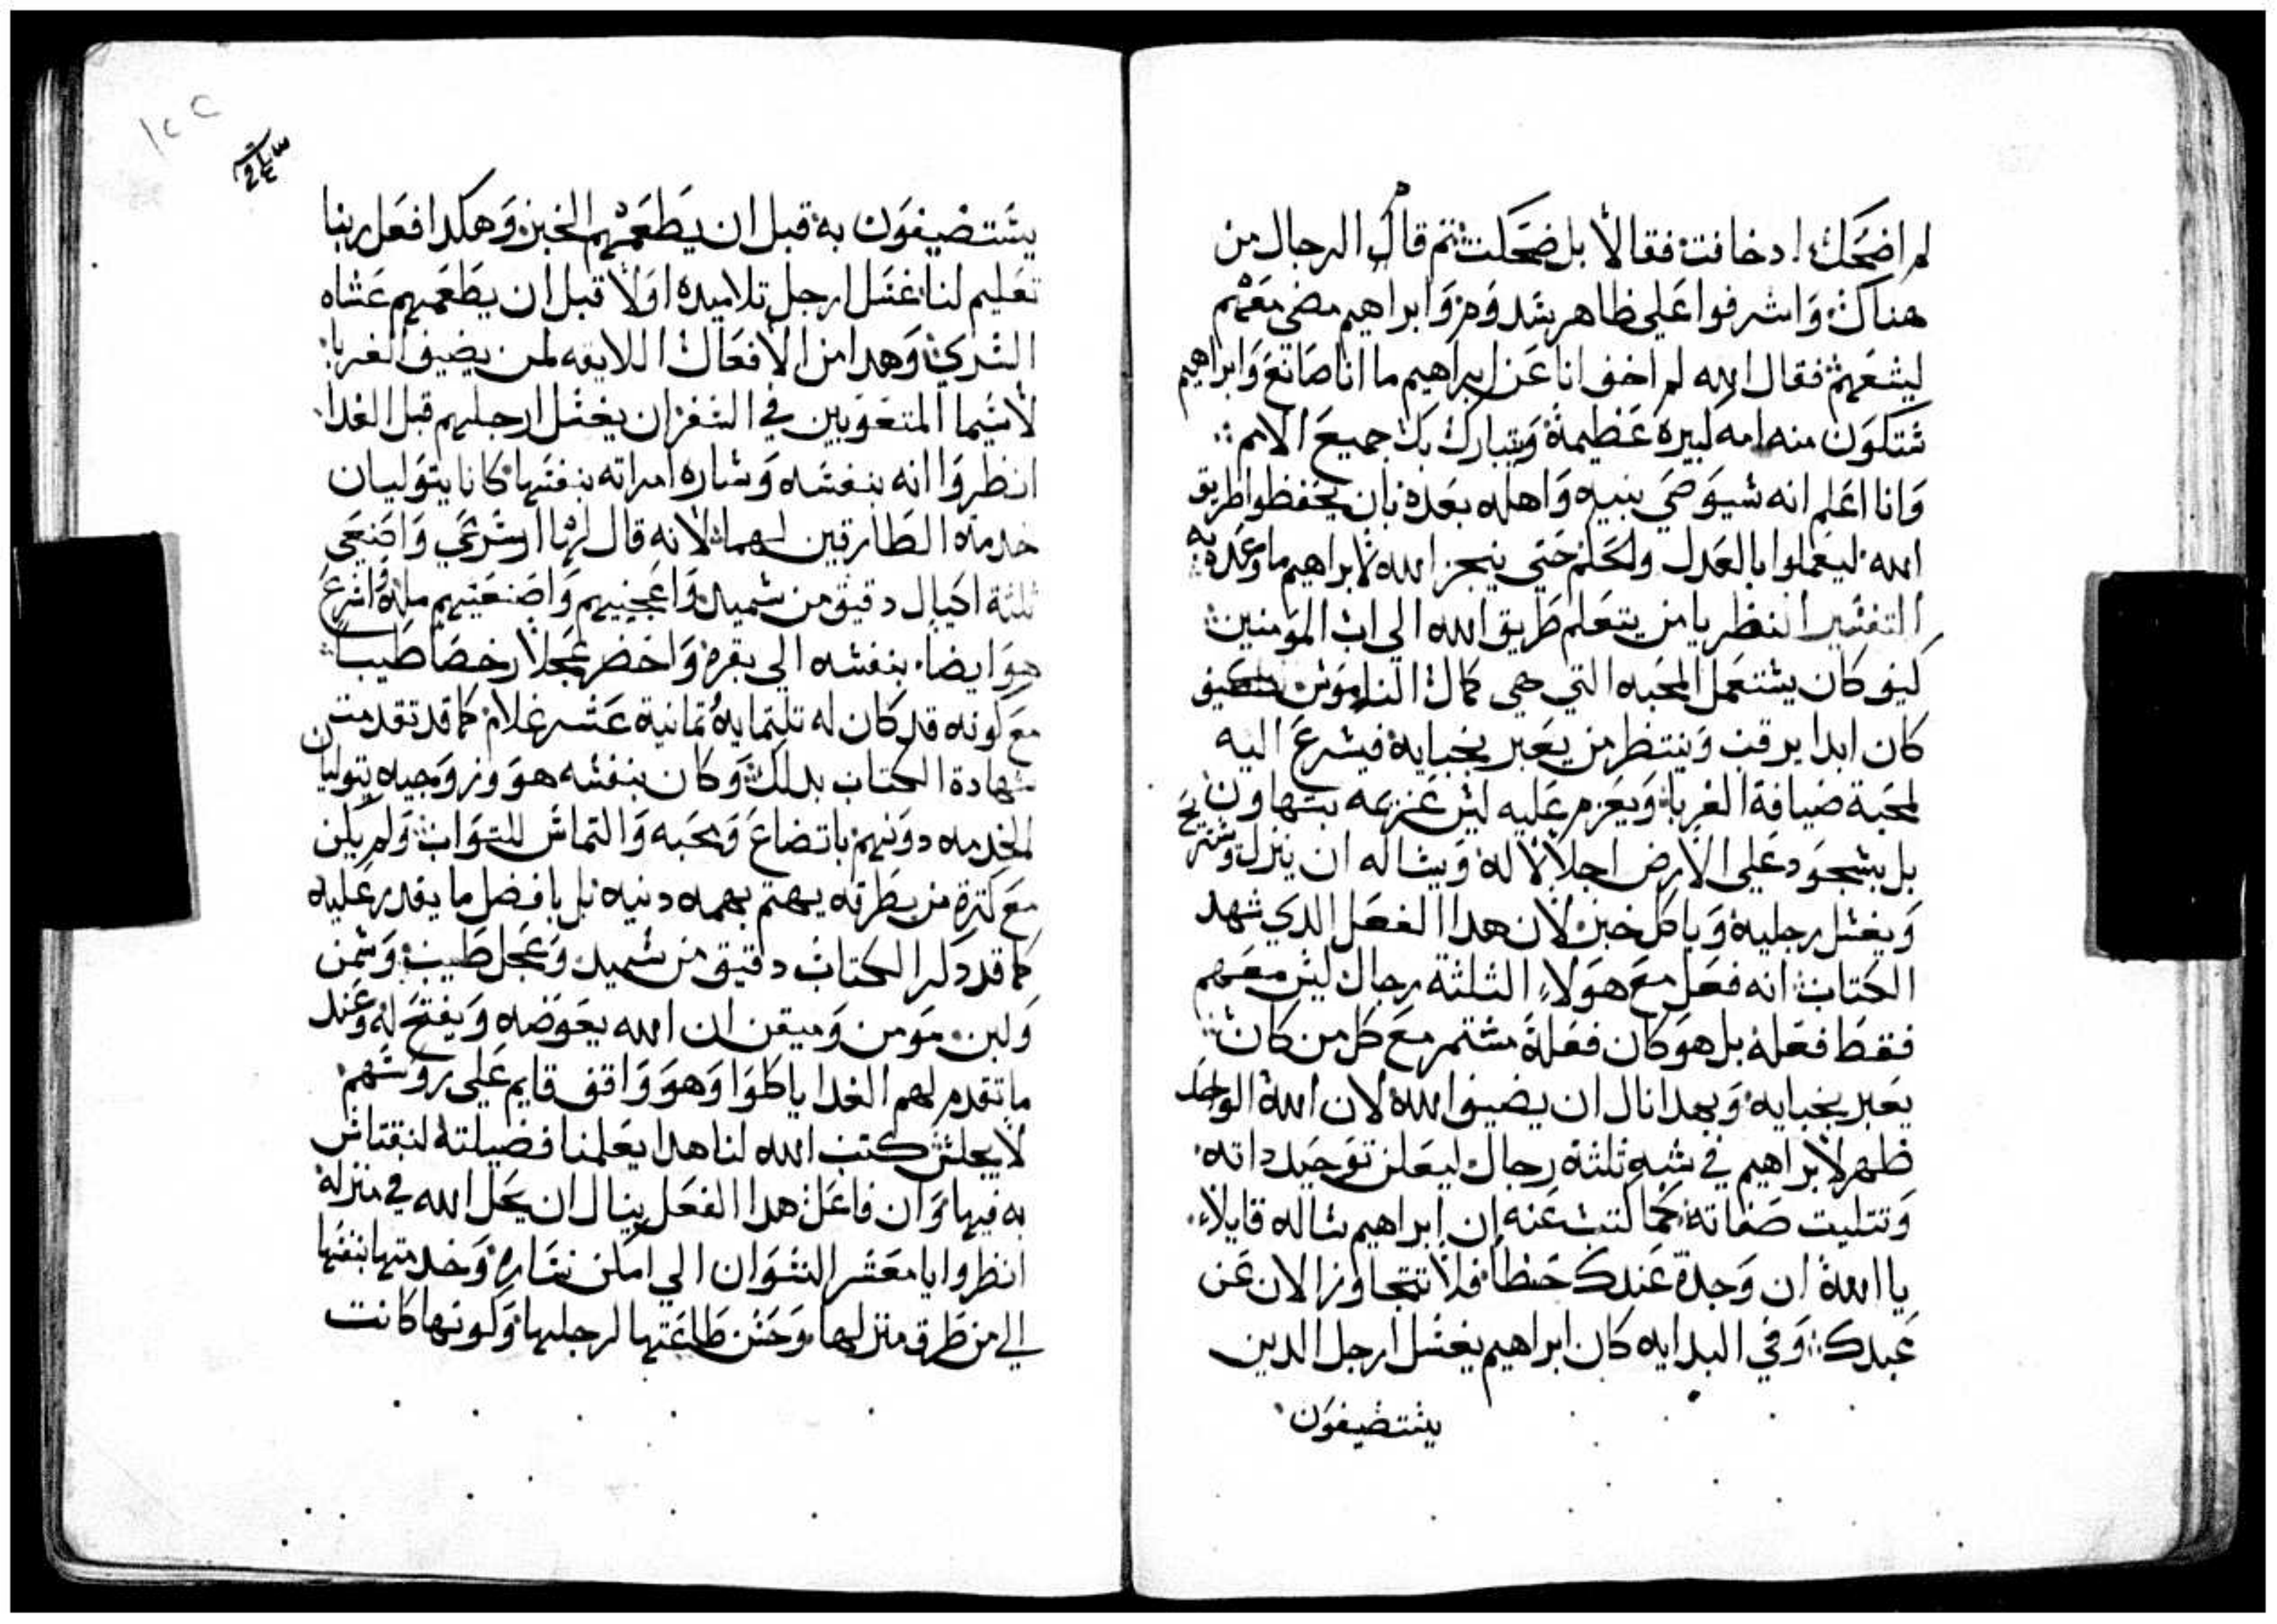 لم اضحك اد خافت فقالا بل ضحكت ثم قال الرجال من
هناك واشرفوا علي ظاهر سدوم وابراهيم مضي معهم
ليشعهم فقال الله لم اخف انا عن ابراهيم ما انا صانع وابراهيم
ستكون منه امه كبيره عظيمة ويتبارك بك جميع الامم
وانا اعلم انه سيوصي بنيه واهله بعده بان يحفظوا طريق
الله ليعملوا بالعدل والحلم حتي ينجز الله لابراهيم ما وعده به
التفسير انظر يا من يتعلم طريق الله الي اب المومنين
كيف كان يستعمل المحبه التي هي كمال الناموس كيف
كان ابدا يرقب وينتظر من يعبر بخبايه فيسرع اليه
لمحبة ضيافة الغربا ويعزم عليه ليس عزيمه بتهاون
بل بسجود علي الارض اجلالا له ويساله ان ينزل ويستريح
ويغسل رجليه وياكل خبز لان هدا الفعل الدي شهد
الكتاب انه فعل مع هولاء الثلثة رجال ليس معهم
فقط فعله بل هو كان فعله مستمر مع كل من كان
يعبر بخبايه وبهدا نال ان يضيف الله لان الله الواحد
ظهر لابراهيم في شبه ثلثة رجال ليعلن توحيد داته
وتتليت صفاته كما كتب عنه ان ابراهيم ساله قايلا
يا الله ان وجدة عندك حظا فلا تتجاوز الان عن
عبدك وفي البدايه كان ابراهيم يغسل ارجل الدين
يستضيفون
١٢٢
يستضيفون به قبل ان يطعمهم الخبز وهكدا فعل ربنا
تعليم لنا غسل ارجل تلاميده اولا قبل ان يطعمهم عشاه
السري وهدا من الافعال اللايقه لمن يضيف الغربا
لاسيما المتعوبين في السفر ان يغسل ارجليهم قبل الغدا
انظروا انه بنفسه وساره امراته بنفسها كانا يتوليان
خدمة الطارقين لهما لانه قال لها اسرعي واصنعي
ثلثة اكيال دقيق من سميد واعجنيهم واصنعيهم مله واسرع
هو ايضا بنفسه الي بقره واحضر عجلا رخصا طيبا
مع كونه قد كان له تلتمايه تمانية عشر غلام كما قد تقدمت
شهادة الكتاب بدلك وكان بنفسه هو وزوجيه يتوليان
الخدمه دونهم باتضاع ومحبه والتماس للتواب ولم يكن
مع كترة من يطرقه يهتم بهمه دنيه بل بافضل ما يقدر عليه
كما قد دكر الكتاب دقيق من سميد وعجل طيب وسمن
ولبن مومن وميقن ان الله يعوضه ويفتح له وعند
ما تقدم لهم الغدا ياكلوا وهو واقف قايم علي روسهم
لا يجلس كتب الله لنا هدا يعلمنا فضيلته لنقتاس
به فيها وان فاعل هدا الفعل ينال ان يحل الله في منزله
انظروا يا معشر النسوان الي امكن ساره وخدمتها بنفسها
الي من طرق منزلها وحسن طاعتها لرجلها وكونها كانت